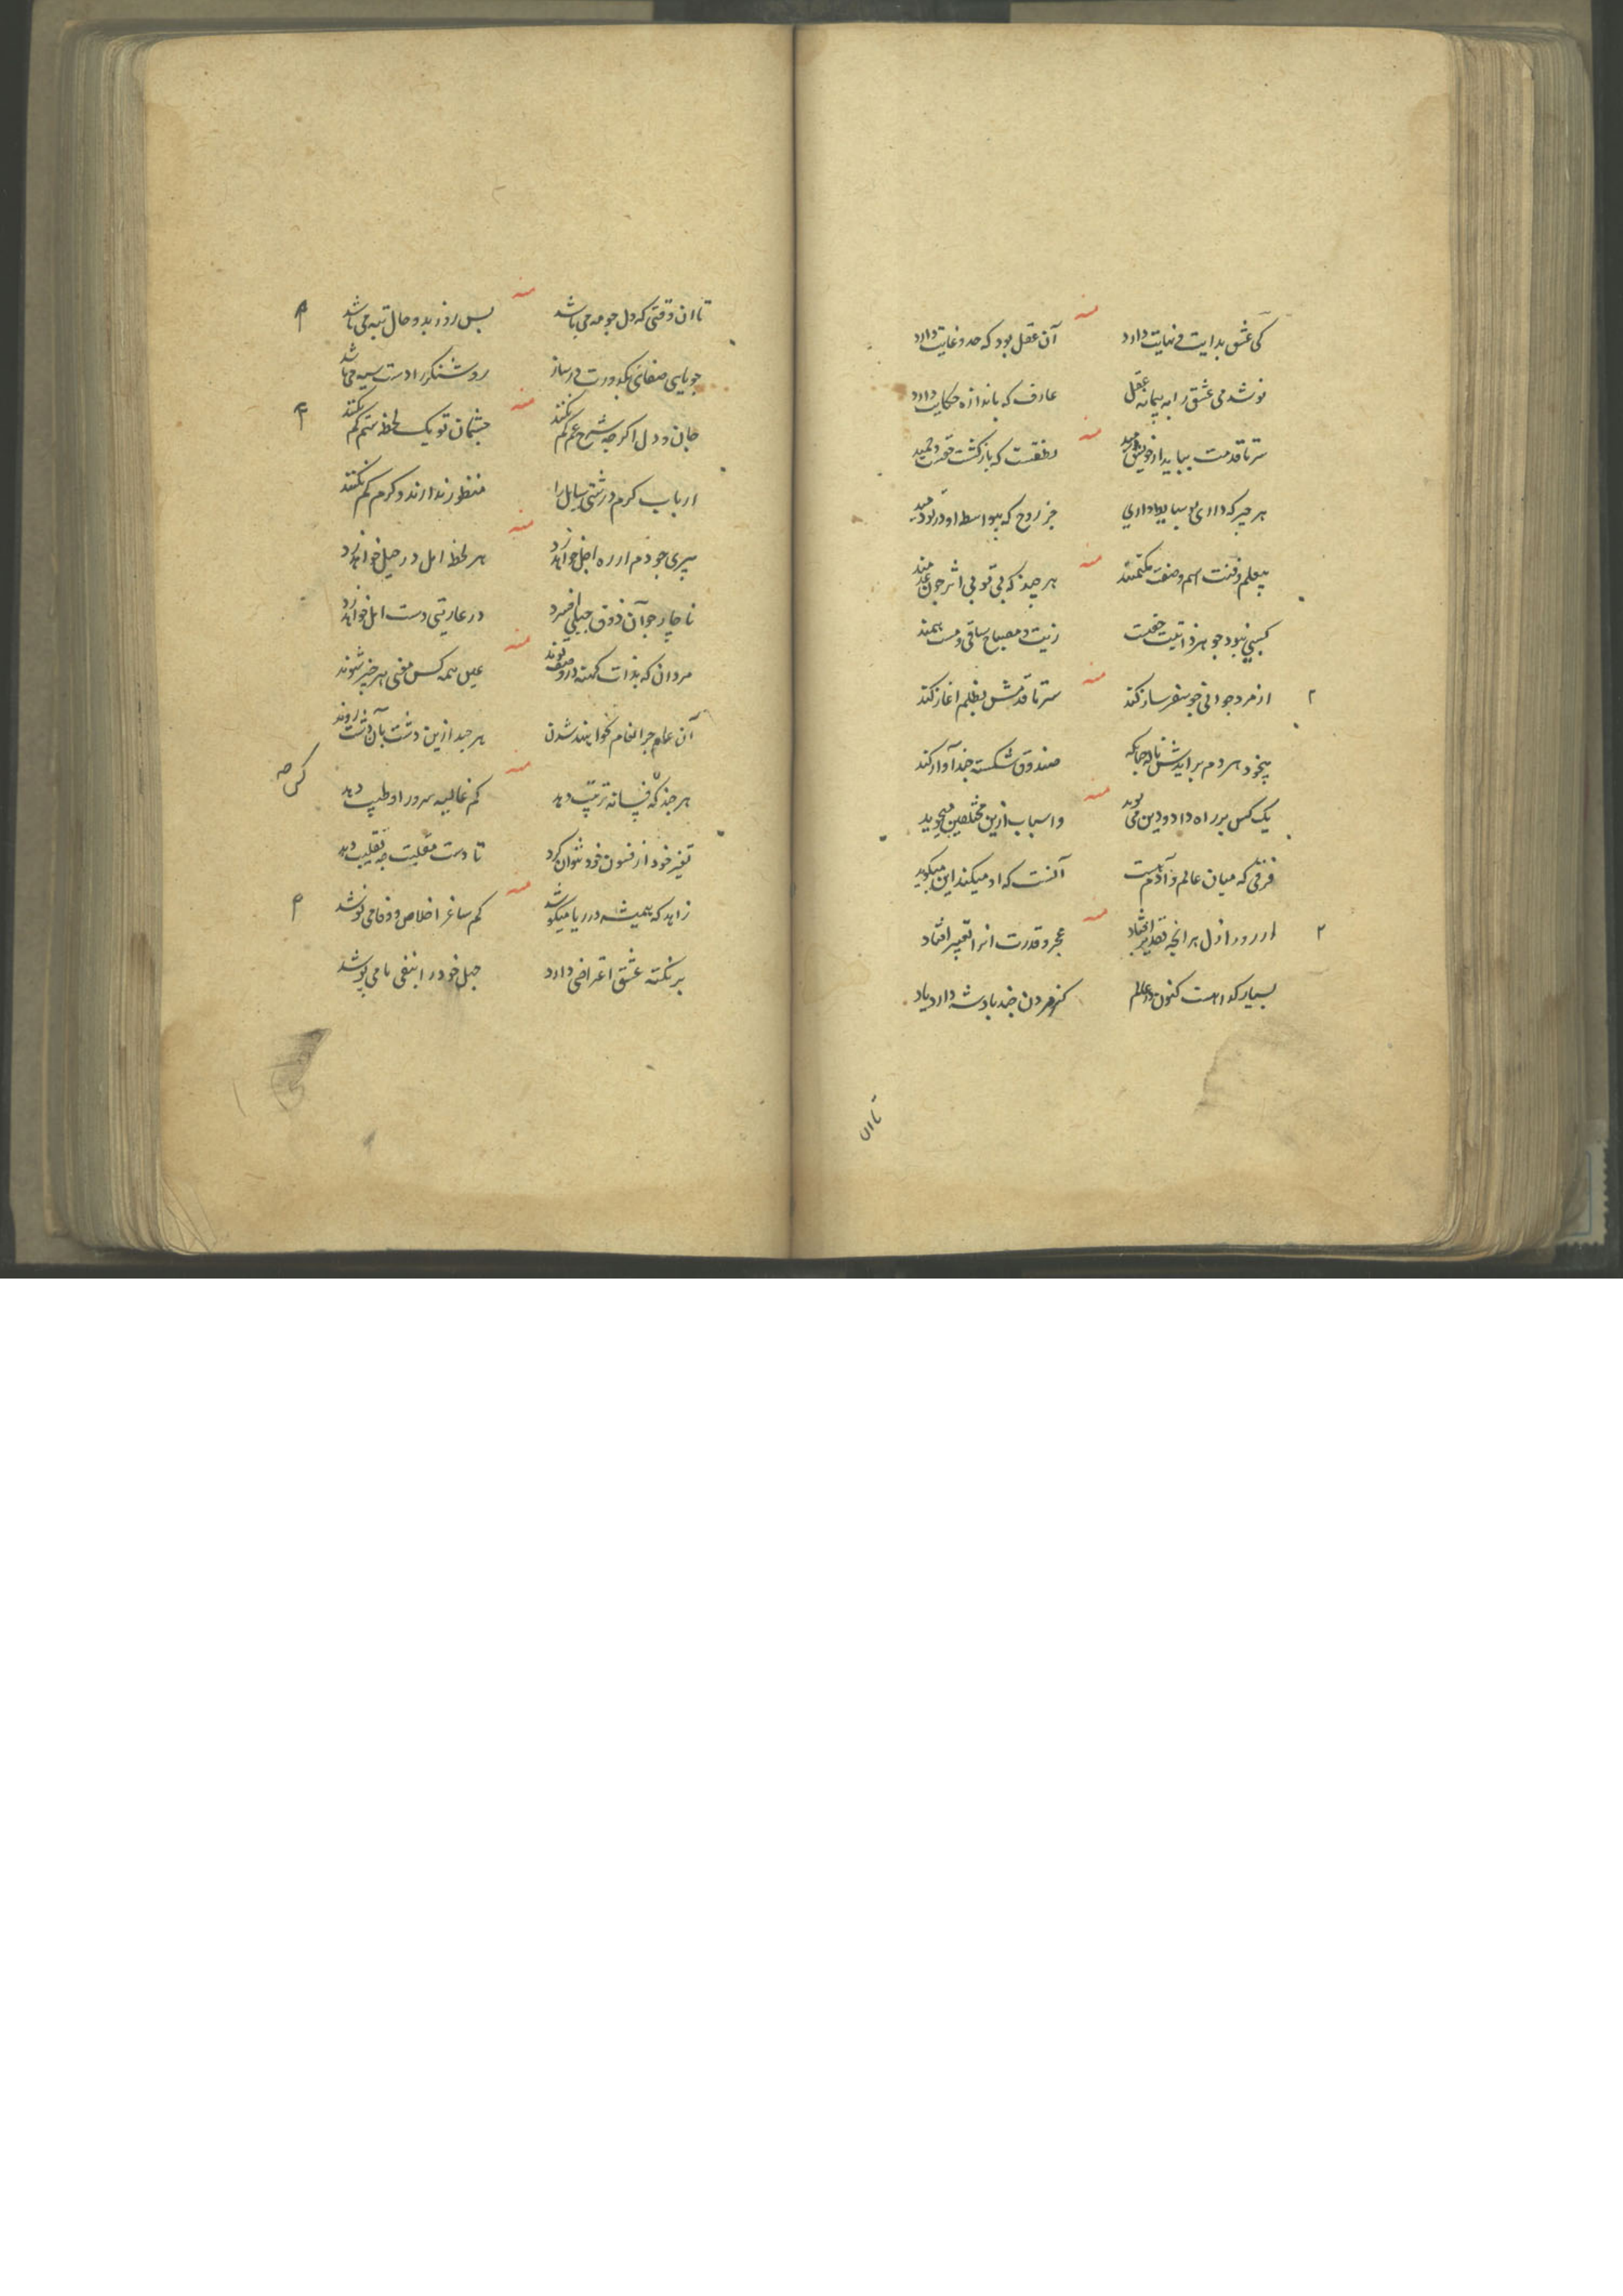 کی عشق بدایت و نهایت دارد آن عقل بود که حد و غایت دارد
نوشد می عشق را به پیمانه عقل عارف که باندازه حکایت دارد
سر تا قدمت بباید از خویش برید لطفست که بازگشت
هر چیز که داری جز روح که بیواسطه او در تو دمید
بیعلم و فنت اسم و صفت هر چند که بی تو بی اثر چون
کسبی نبود جوهر ذاتیت حقیقت زیت و مصباح ساقی و مست همند
۲ از مرد جوانی چو سفر ساز کند سر تا قدمش بظلم آغاز کند
بیخود هر دم برایدش صندوق شکسته چند آواز کند
یک کس بر راه داد و دین می پوید و اسباب ازین مختلفین میجوید
فرقی که میان عالم و آدم هست آنست که او میکند این میگوید
۲ از روز ازل هر آنچه تقدیر افتاد عجز و قدرت انرا تعبیر افتاد
بسیار کدا هست کنون در عالم کز مردن چند پادشه دارد یاد
تا ان
تا ان وقتی که دل چو مه می باشد بس روز بد و حال تبه می باشد
جویایی صفائی بکدورت در ساز روشنگر را دست سیه می باشد
جان و دل اگر چه شرح غم کم نکنند چشمان تو یک لحظه ستم کم نکنند
ارباب کرم درشتی سایل را منظور ندارند و کرم کم نکنند
پیری چو دم از ره اجل خواهد زد هر لحظه امل در حیل خواهد زد
ناچار چو آن ذوق جبلی افسرد در عاریتی دست امل خواهد زد
مردان که بذات عین همه کس معنی هر چیز شوند
آن عام چرا هر چند ازین دشت بآن دشت روند
هر چند که فسانه ترتیب دهد کم غالیه سرور او طیب دهد
تغیر خود از فنون خود نتوان کرد تا دست مقلبت چه تقلیب دهد
زاهد که همیشه در ریا میکوشد کم ساغر اخلاص و وفا می نوشد
بر نکته عشق اعتراضی دارد جهل خود را بنفی ما می پوشد